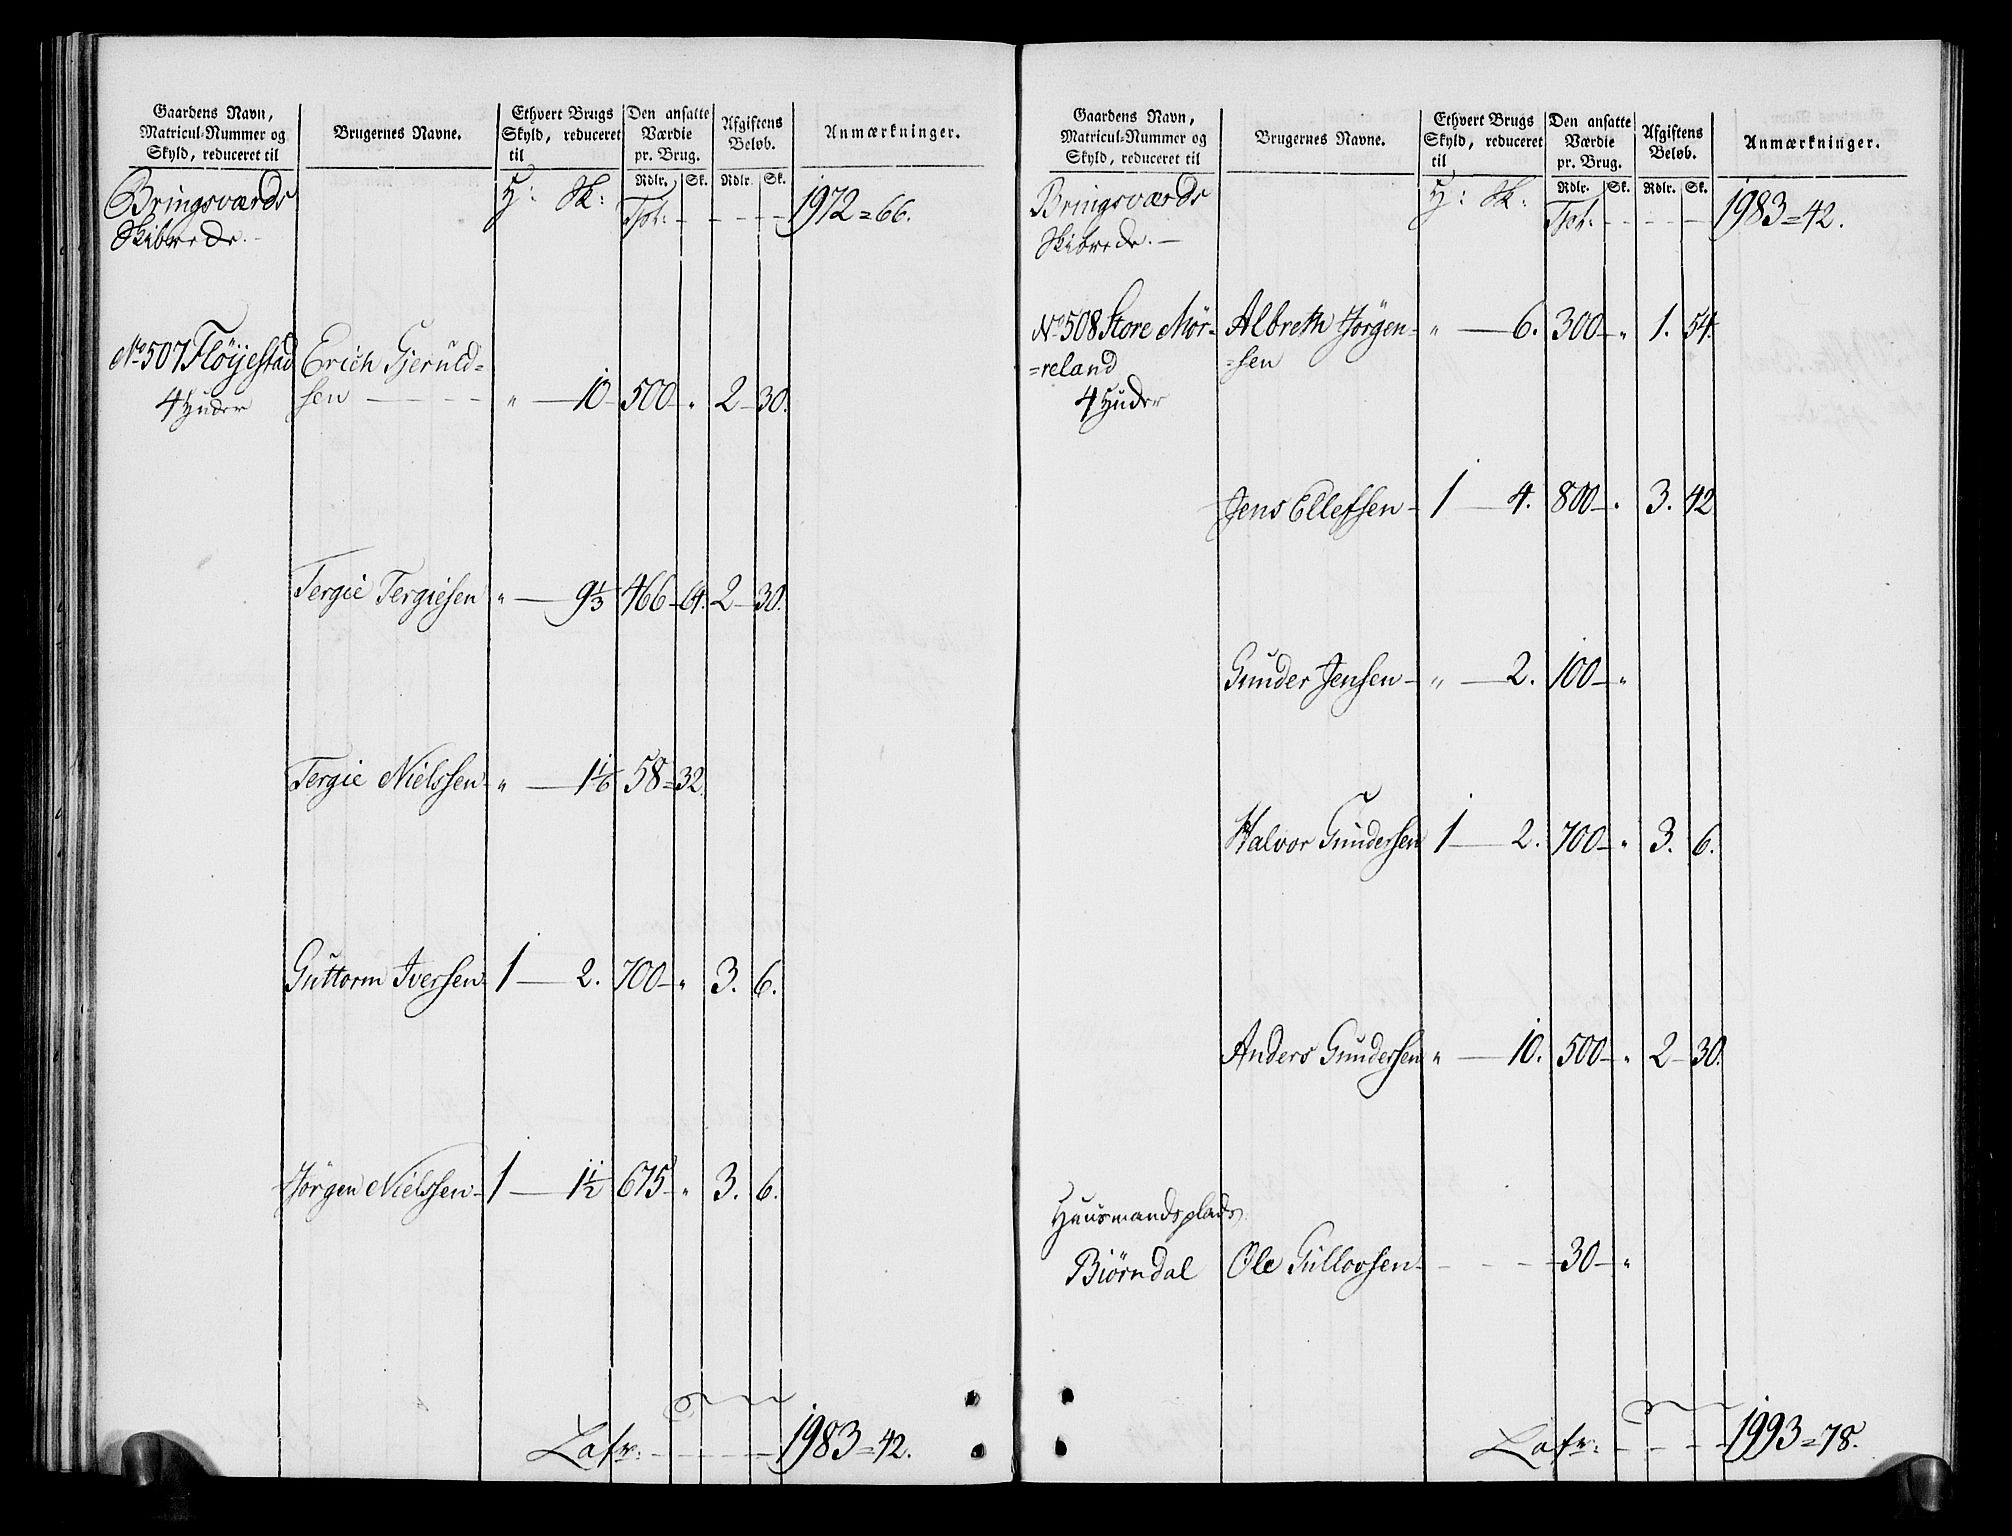 Gaardens Navn,
Matricul-Nummer og
Skyld, reduceret til
Brugernes Navne.
Ethvert Brugs
Skyld, reduceret
til
Den ansatte
Værdie
pr. Brug.
Rdlr. Sk.
Afgiftens
Beløb.
Rdlr. Sk.
Anmærkninger.
Bringsværds H: Sk: Tpt: - - - - 1972=66.
Skibrede.
No 507 Fløyestad Erich Gjeruld=
4 Huder sen - - - " — 10 - 500 - " 2 - 30.
Tergie Tergiesen " — 9 1/3 466 - 64. 2 - 30.
Tergie Nielssen - " — 1 1/6 58 = 32.
Guttorm Iversen - 1 — 2. 700 - " 3. 6.
Jørgen Nielssen - 1 — 1 1/2 675 - " 3. 6.
Lafr: - - - - 1983=42.
Gaardens Navn,
Matricul-Nummer og
Skyld, reduceret til
Brugernes Navne.
Ethvert Brugs
Skyld, reduceret
til
Den ansatte
Værdie
pr. Brug.
Rdlr. Sk.
Afgiftens
Beløb.
Rdlr. Sk.
Anmærkninger.
Bringsværds H: Sk: Tpt: - - - - 1983=42.
Skibrede. —
No 508 Store Mör- Albreth Jörgen- " — 6. 300 - " 1. 54.
=reland =sen
4 Huder
Jens Ellefsen - 1 — 4. 800 - " 3. 42
Gunder Jensen - " — 2. 100 - "
Halvor Gundersen 1 — 2. 700 - " 3. 6.
Anders Gundersen " — 10. 500 - " 2 - 30.
Huusmandsplads
Biörndal Ole Gullovsen - - - - 30 - "
Lafr: - - - - 1993=78.